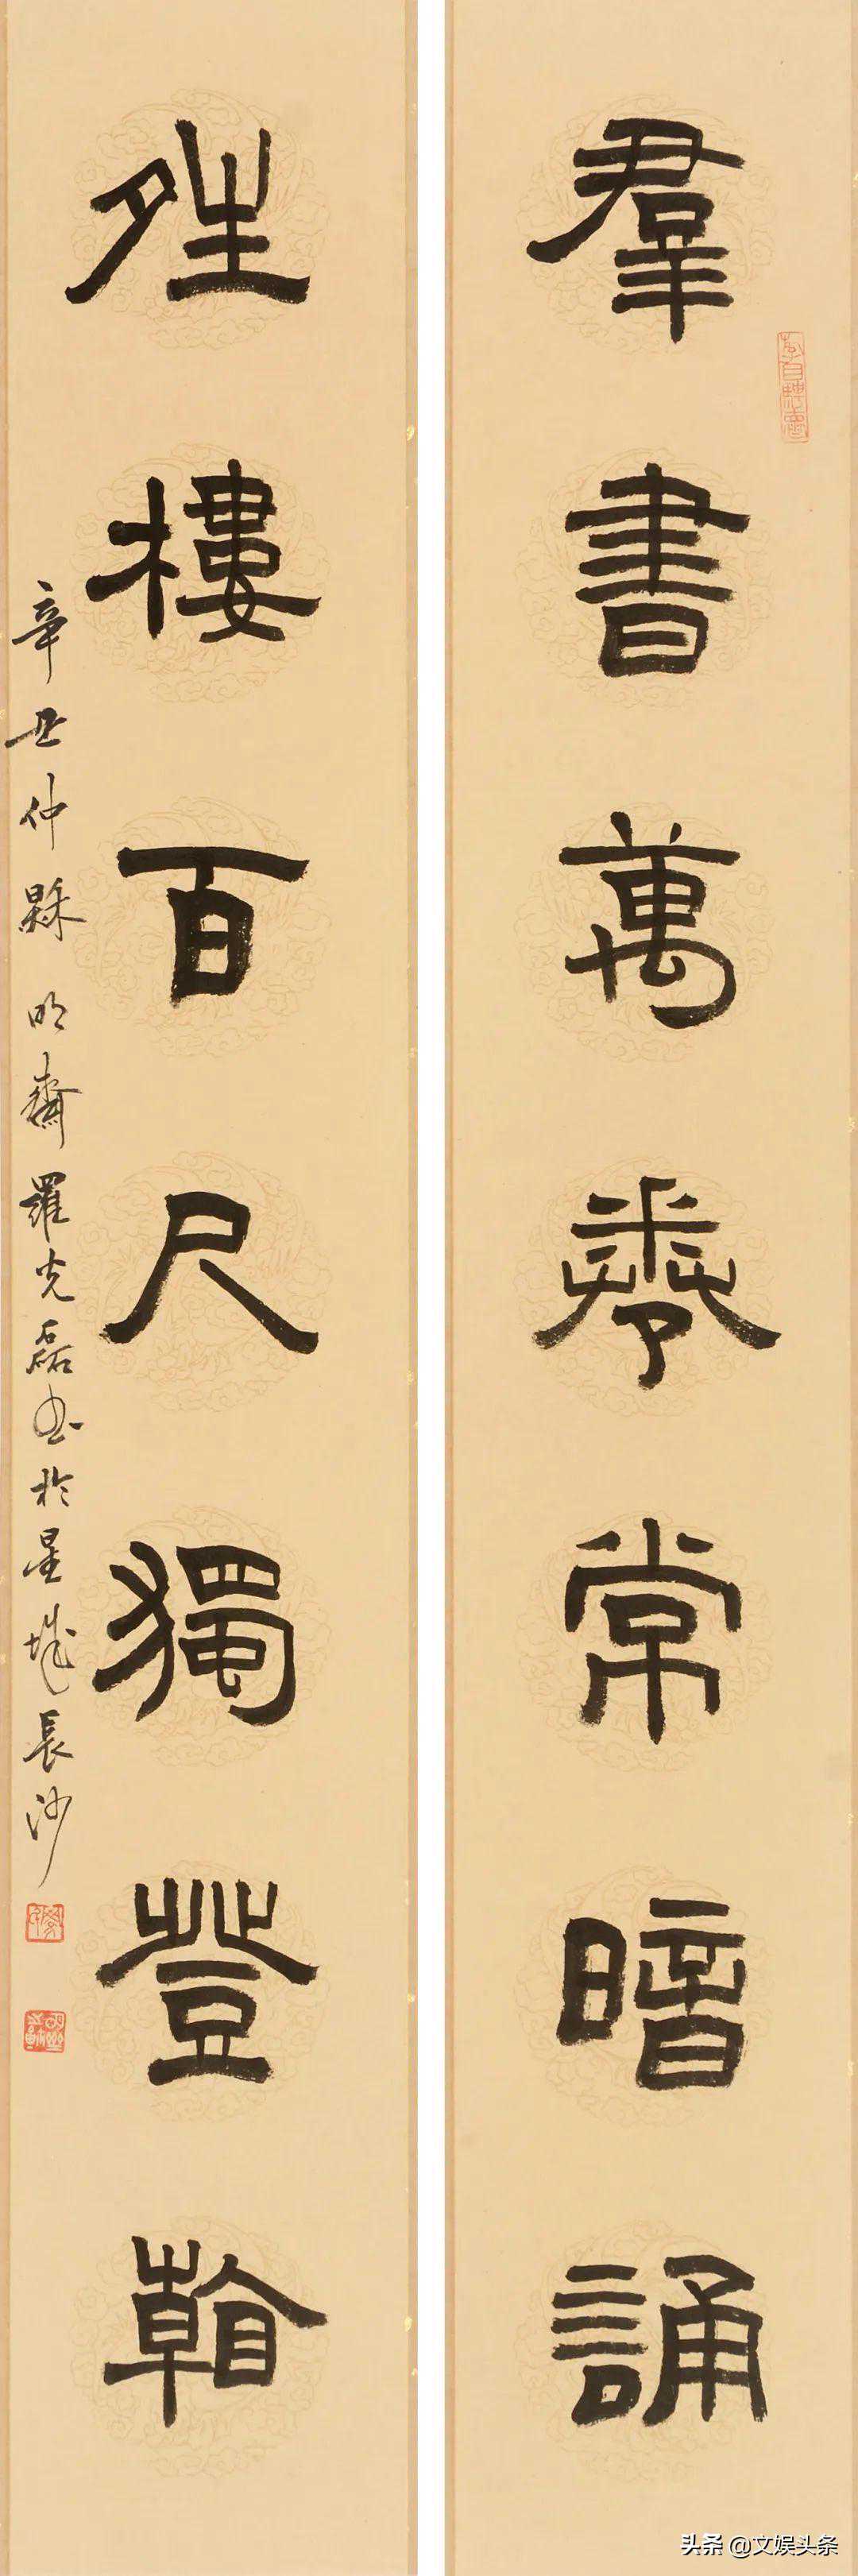 羣書萬卷常暗誦
夝樓百尺獨登
辛丑仲 明齋羅光磊书於星城長沙
头条 @文娱头条